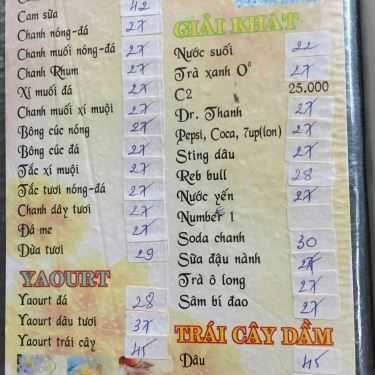 42
Cam sữa 27
Chanh nóng-đá 27
Chanh muối nóng-đá 27
Chanh Rhum 27
Xí muối đá 27
Chanh muối xí muội 27
Bông cúc nóng 27
Bông cúc đá 27
Tắc xí muội 27
Tắc tươi nóng-đá 27
Chanh dây tươi 27
Đá me 27
Dừa tươi 29
YAOURT
Yaourt đá 28
Yaourt dâu tươi 37
Yaourt trái cây 45
GIẢI KHÁT
Nước suối 22
Trà xanh O° 27
C2 25.000
Dr. Thanh 27
Pepsi, Coca, 7up(lon) 27
Sting dâu 27
Reb bull 28
Nước yến 27
Number 1
Soda chanh 30
Sữa đậu nành 27
Trà ô long 27
Sâm bí đao 27
TRÁI CÂY DẦM
Dâu 45